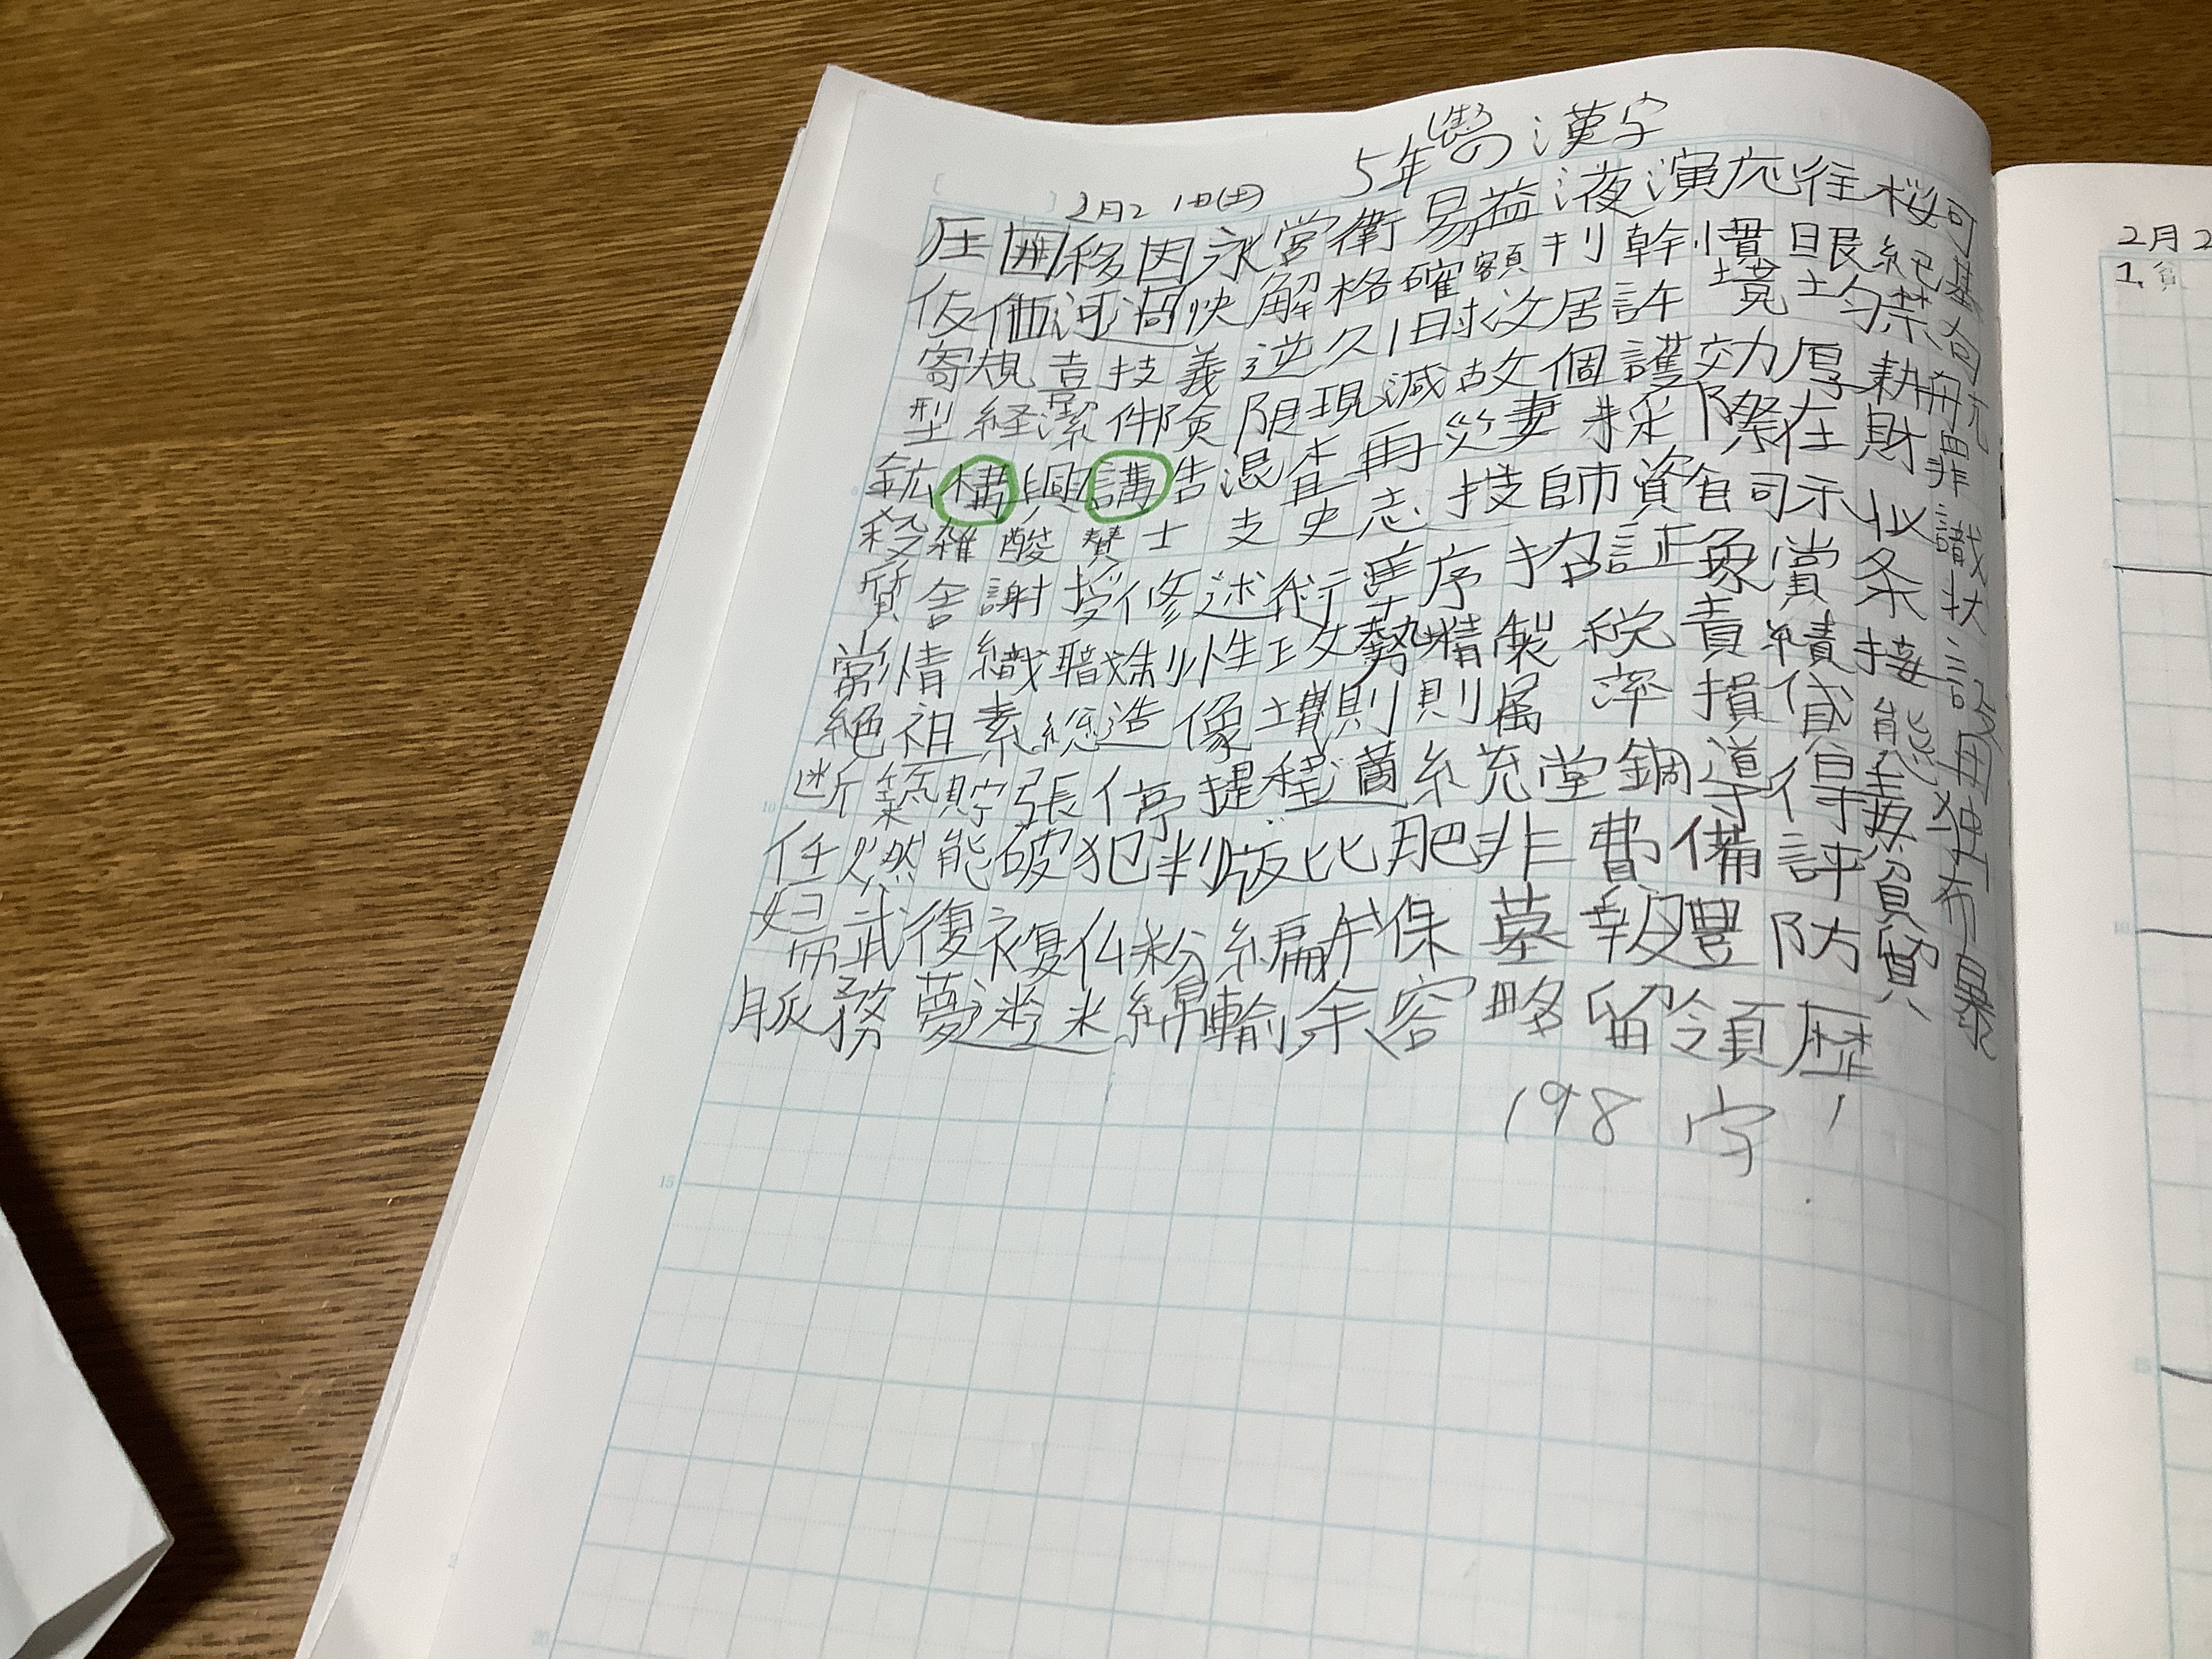 5年の漢字
2月21日(土)
圧囲移因永営衛易益液演応往桜可
仮価河過快解格確額刊幹慣眼紀基
寄規喜技義逆久旧救居許境均禁句
型経潔件険限現減故個護効厚耕航
鉱構興講告混査再災妻採際在財罪
殺雑酸賛士支史志技師資飼示似識
質舎謝授修述術準序招証象賞条状
常情織職制性政勢精製税責績接設
絶祖素総造像増則測属率損貸態
断築貯張停提程適統堂銅導得毒独
任燃能破犯判版比肥非費備評貧布
婦武復複仏粉編弁保墓報豊防貿暴
脈務夢迷綿輸余容略留領歴
198字
2月2
1.